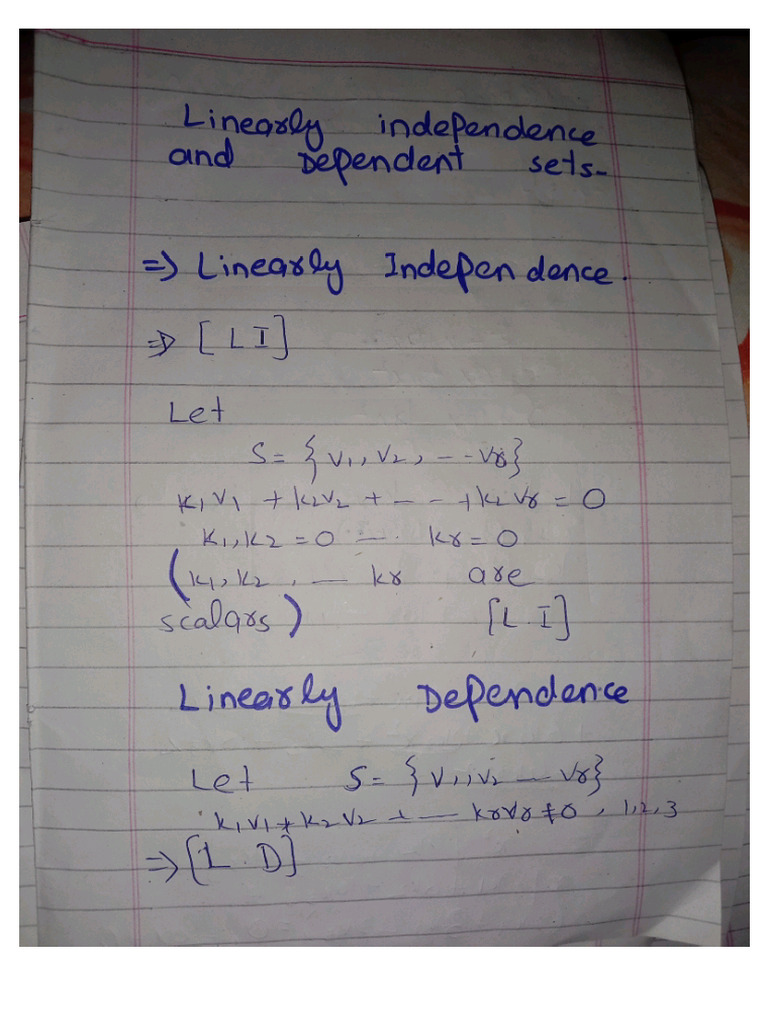 Linearly independence
and Dependent sets-
=> Linearly Independence.
=> [ L I ]
Let
S = { v1, v2, -- vr }
k1v1 + k2v2 + - - + k2 vr = 0
k1, k2 = 0 -- kr = 0
(k1, k2, -- kr are
scalars) [L.I]
Linearly Dependence
Let S = { v1, v2 -- vr }
k1v1 + k2v2 + -- krvr ≠ 0, 1, 2, 3
=> [L.D]